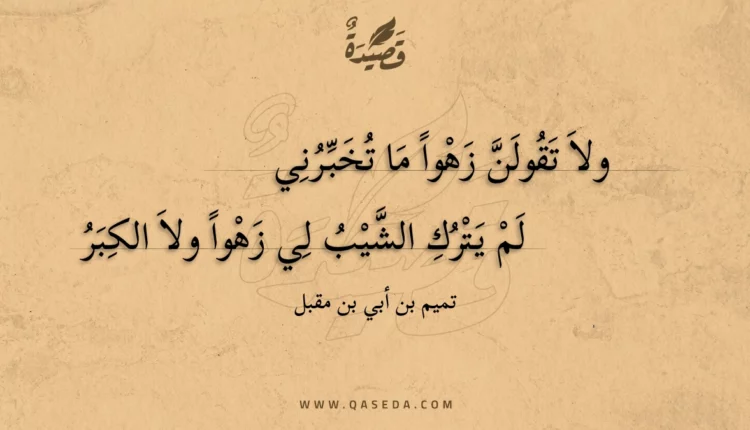 قَصِيدَةٌ
ولاَ تَقُولَنَّ زَهْواً مَا تُخَبِّرُنِي
لَمْ يَتْرُكِ الشَّيْبُ لِي زَهْواً ولاَ الكِبَرُ
تميم بن أبي بن مقبل
WWW.QASEDA.COM